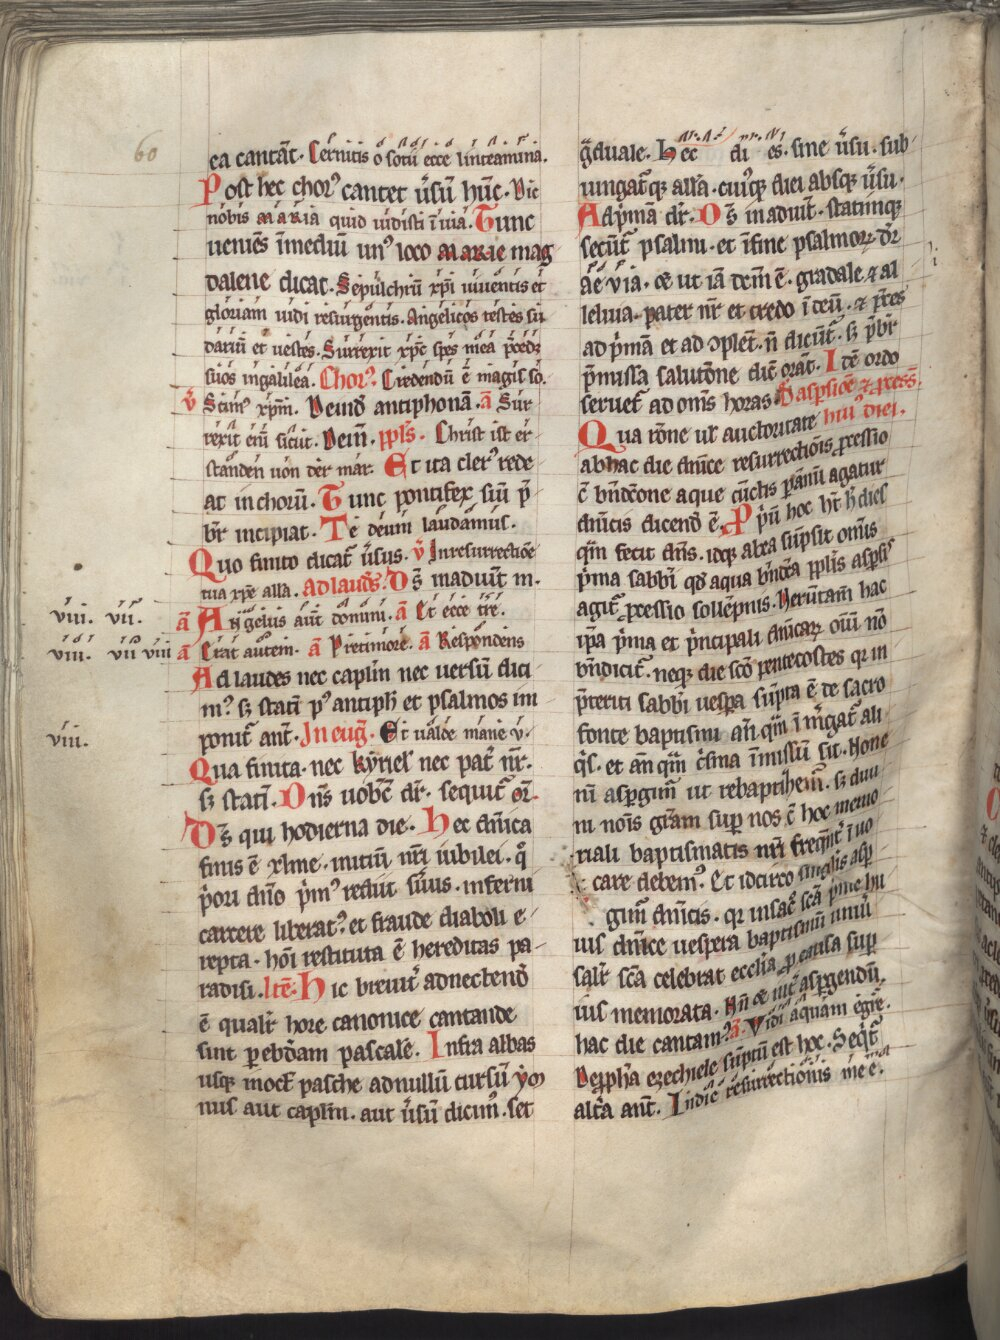 60
ea cantāt. Cernitis o sotii ecce linteamina.
Post hec chorꝰ cantet v̄sū hūc. Dic
nobis maria quid vidisti ī via. Tunc
veniēs ī mediū unꝰ loco marie mag
dalene dicat. Sepulchrū xp̄i viventis et
gloriam vidi resurgentis. Angelicos testes su
dariū et vestes. Surrexit xp̄c spes mea p̄cedꝫ
suos in galilea. Chorꝰ. Credendū ē magis so.
v̄ Scimꝰ xp̄m. Deinđ antiphonā. ā Sur
rexit enī sicut. Dein. pp̄ls. Christ ist er
standen von der mar. Et ita clerꝰ rede
at in chorū. Tunc pontifex siū p̄
br̄ incipiat. Te deum laudamus.
Quo finito dicat̄ v̄sus. v̄ In resurrectiōe
tua xp̄e alla. Ad laud̄. Ds̄ in adiut̄ m.
viii. vii. ā Angelus aut̄ domini. ā Et ecce tr̄e.
viii. vii viii ā Erat autem. ā Pretimore. ā Respondens
Ad laudes nec caplm nec versū dici
mꝰ sꝫ stati pꝰ antiph̄ et psalmos im
viii. ponit̄ ant̄. In eug̃. Et valde mane v.
Qua finita. nec kyriel̄ nec pat̄ nr̄.
sꝫ stati. Dn̄s vobc̄ dr̄. sequit̄ or̄.
Ds̄ qui hodierna die. Hec dn̄ica
finis ē xl̄me. initiū nr̄i iubilei. q̄
p̄ori dn̄o p̄mꝰ rediit suus. inferni
carcere liberatꝰ. et fraude diaboli e
repta. hōi restituta ē hereditas pa
radisi. Itē. Hic brevit̄ adnectenđ
ē qualr̄ hore canonice cantande
sint per ebđam pascalē. Infra albas
usqꝫ in oct̄ pasche ad nullū cursū ym
nus aut caplm. aut v̄sū dicimꝰ. set
g̃duale. Hec di es. sine v̄su. sub
iungat̄qꝫ all̄a. cuiꝰqꝫ diei absqꝫ v̄su.
Ad p̄mā dr̄. Ds̄ in adiut̄. statimqꝫ
secūt̄ psalmi. et ī fine psalmoꝝ dr̄
aevia. ut iā dc̄m ē. gradale ⁊ al
leluia. pater nr̄ et credo ī deū. ⁊ p̄ces
ad p̄mā et ad ꝯplet̄. n̄ dicūt̄. sꝫ p̄br̄
p̄missa salutōne dic̄ orat̄. Idē ordo
servet̄ ad om̄s horas. D̄ aspsiōe ⁊ ꝓcess̄.
Qua rōne vl̄ auctoritate huiꝰ diei.
ab hac die dn̄ice resurrectiōis ꝓcessio
c̄ bn̄dc̄one aque cūctis p̄ annū agatur
dn̄icis dicenđ ē. Pp̄ū hoc ht̄ h̄ dies
qm̄ fecit dn̄s. idqꝫ ab ea sūpsit om̄is
p̄ma sabbi qđ aqua bn̄dc̄a pp̄lis aspsis
agit̄ ꝓcessio sollēpnis. Verūtam̄ hac
ip̄a p̄ma et p̄ncipali dn̄icaꝝ oīuī nō
bn̄dicit̄. neqꝫ die scō pentecostes qr in
p̄teriti sabbi vespa sūpta ē de sacro
fonte baptismi an̄ qm̄ ī m̄gat̄ ali
q̄s. et an̄ qm̄ c̄sma īmissū sit. None
nī aspgim̄ ut rebaptihem̄. sꝫ divi
ni nōis grām sup nos c̄ hoc memo
riali baptismatis nr̄i freq̄nt̄ ī vo
care debemꝰ. Et idcirco singlis asp
gim̄ dn̄icis. qr in sac̄ scā p̄me hu
ius dn̄ice vespera baptismū univ̄
salr̄ scā celebrat eccl̄ia. ꝓ causa sup
ius memorata. An̄ int̄ aspgendū.
hac die cantamꝰ. ā Vidi aquam egr̄e.
De ꝓph̄a ezechiele sūptū est hoc. Seqt̄
alt̄a ant̄. In die resurrectionis mee.